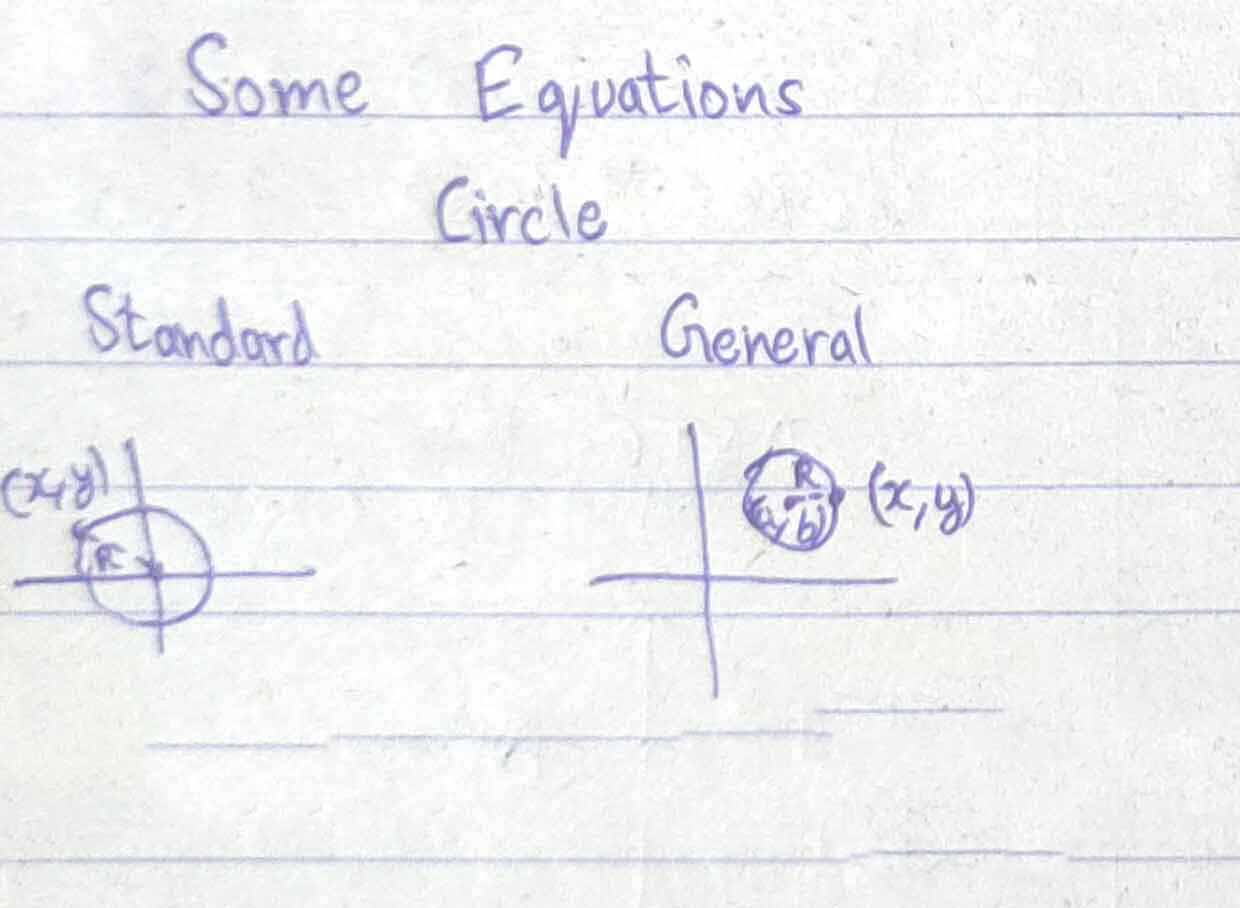 Some Equations
Circle
Standard General
(x,y) R (x,y)
R (a,b)